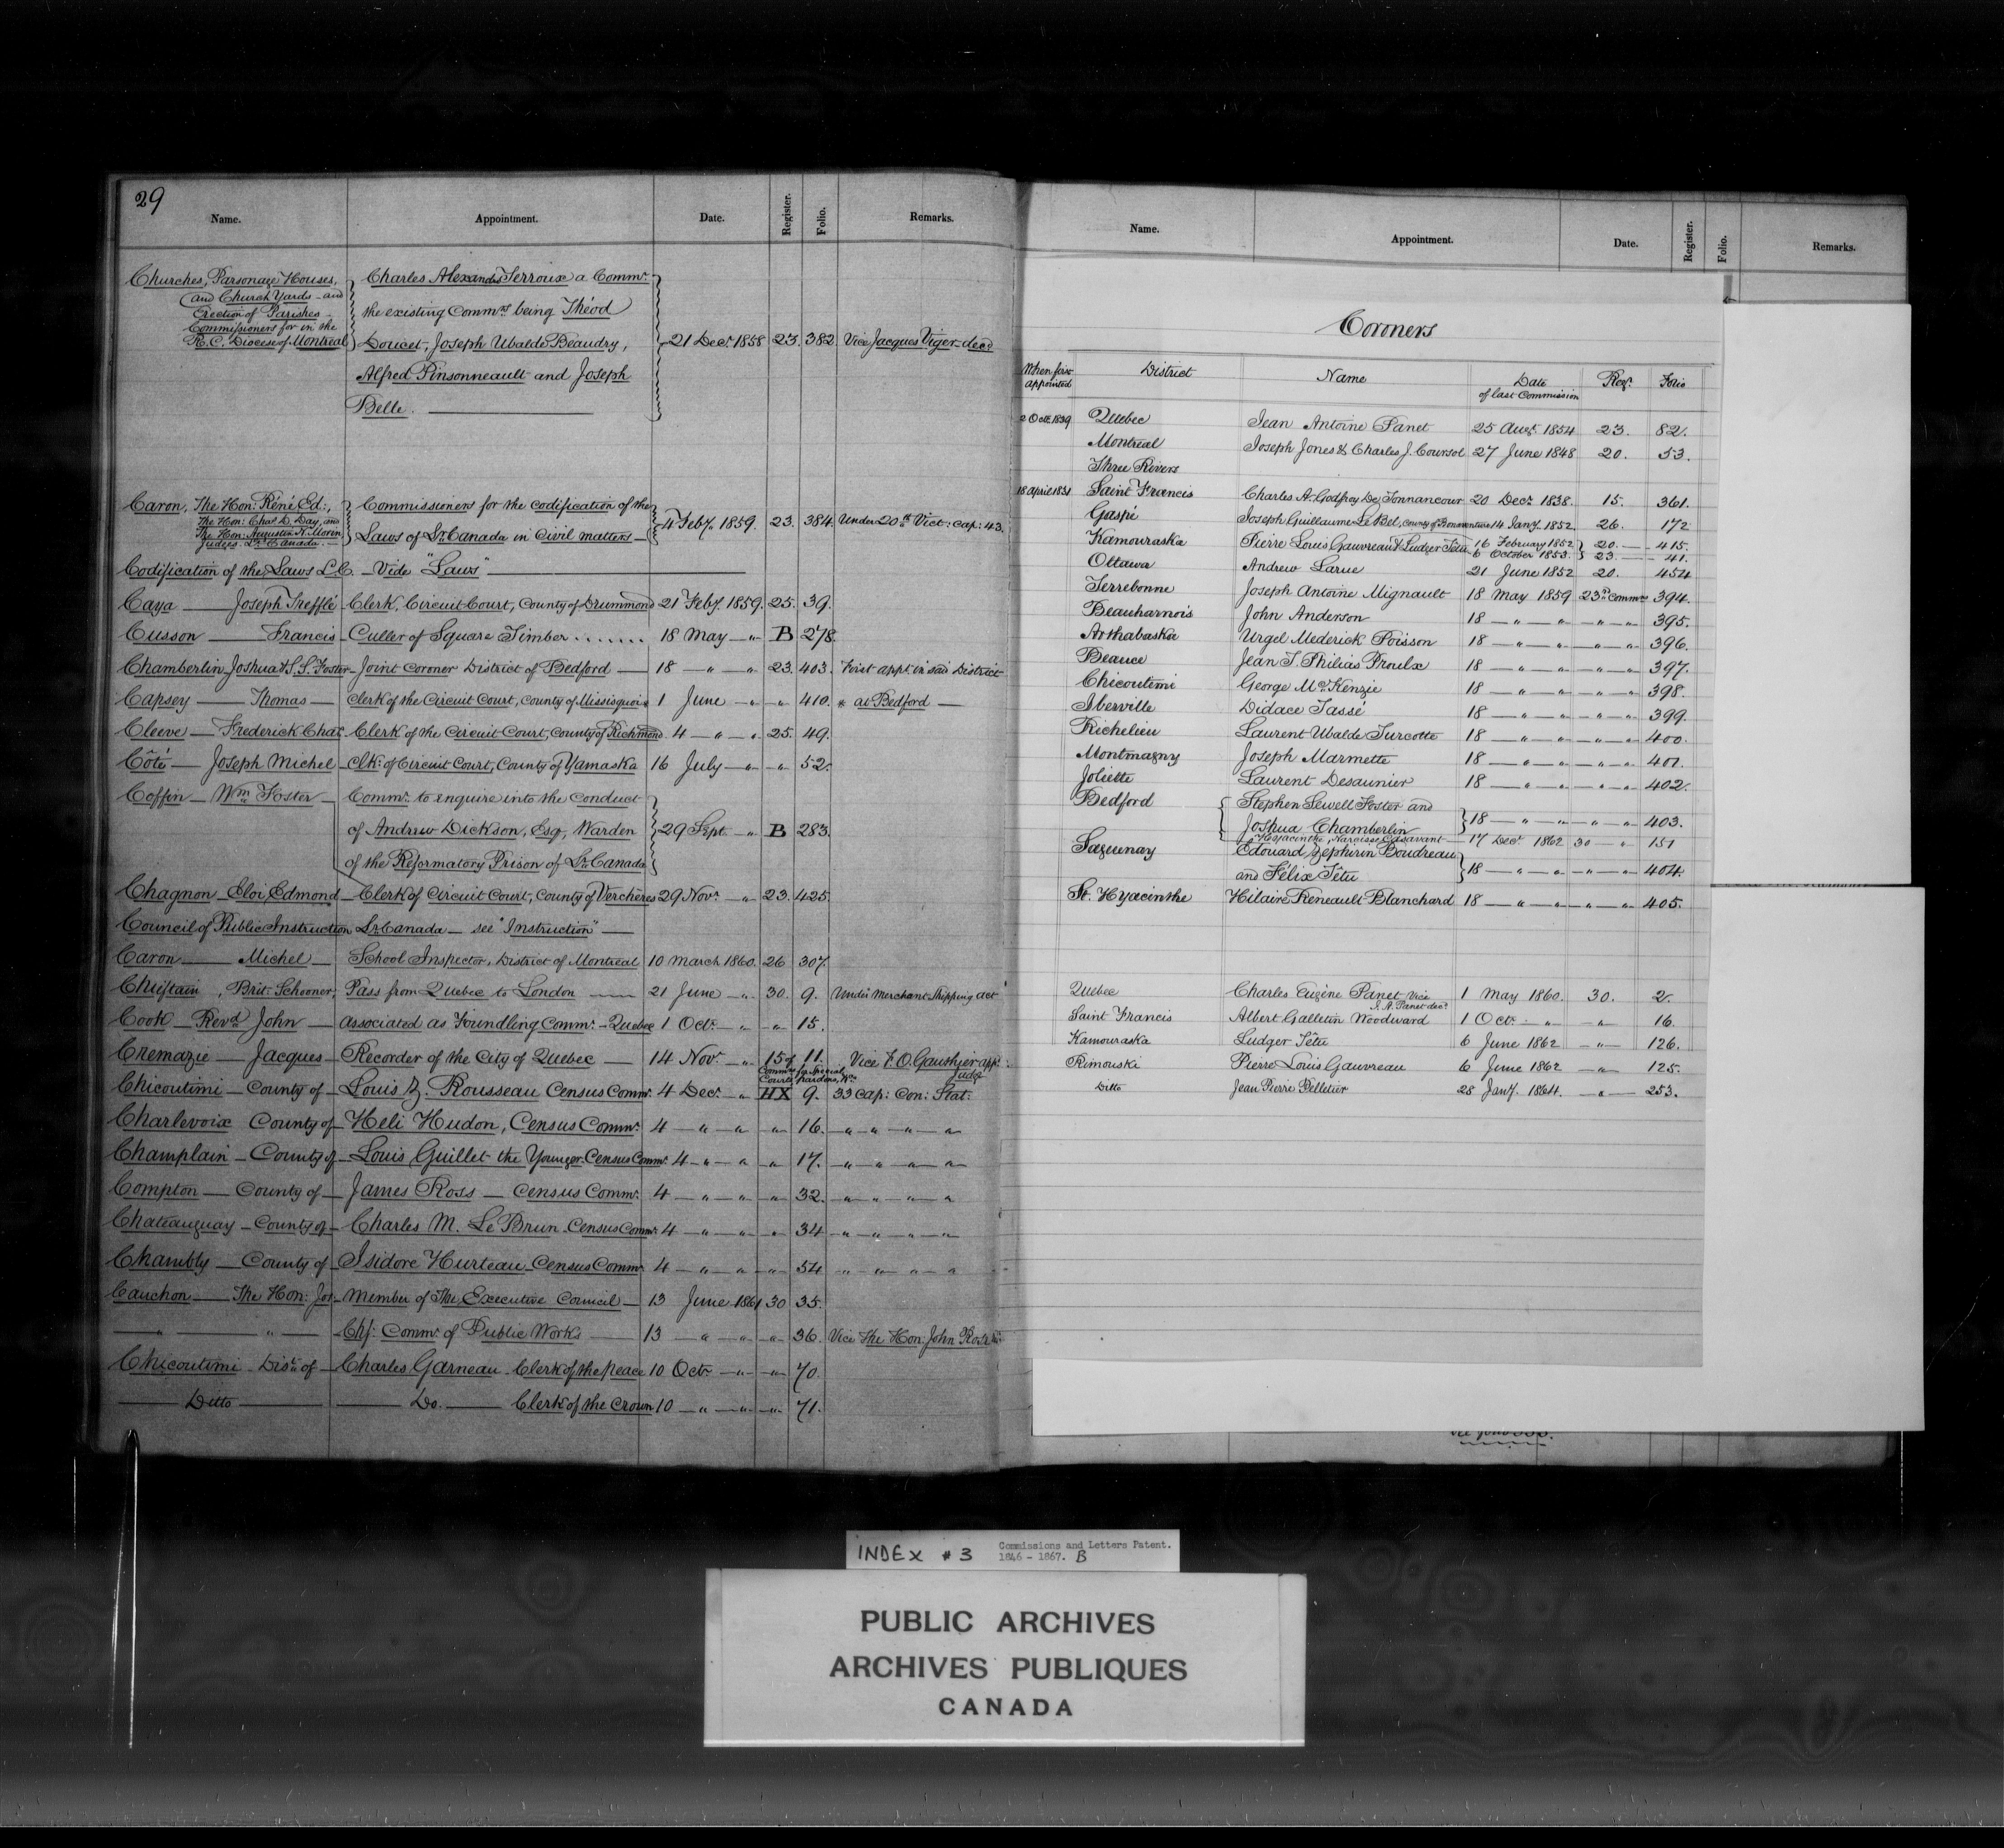 29
Name. Appointment. Date. Register. Folio. Remarks.
Churches, Parsonage Houses, Charles Alexandre Terroux a Commr.
and Church Yards - and the existing Commrs being Théod
Erection of Parishes -
Commissioners for in the
R.C. Diocese of Montreal Doucet, Joseph Ubalde Beaudry, 21 Decr 1858 23. 382. Vice Jacques Viger - decd
Alfred Pinsonneault and Joseph
Belle.
Caron, The Hon: Réné Ed:, Commissioners for the codification of the
The Hon: Chas D. Day, and
The Hon: Augustin N. Morin Laws of Lr Canada in Civil matters 4 Feby. 1859. 23. 384. Under 20th Vict: Cap: 43.
Judges Lr Canada.
Codification of the Laws L.C. - Vide "Laws"
Caya Joseph Trefflé Clerk, Circuit Court, County of Drummond 21 Feby. 1859. 25. 39.
Cusson Francis Culler of Square Timber . . . . . . . 18 May " B 278.
Chamberlin, Joshua & S. S. Foster Joint Coroner District of Bedford 18 " " 23. 403. First appt in said District
Capsey Thomas Clerk of the Circuit Court, County of Missisquoi * 1 June " " 410. * at Bedford
Cleeve Frederick Chas. Clerk of the Circuit Court, County of Richmond 4 " " 25. 49.
Côté Joseph Michel Clk: of Circuit Court, County of Yamaska 16 July " " 52.
Coffin Wm Foster Commr. to enquire into the conduct
of Andrew Dickson, Esq, Warden 29 Sept. " B 283.
of the Reformatory Prison of Lr Canada
Chagnon Eloi Edmond Clerk of Circuit Court, County of Verchères 29 Novr. " 23. 425.
Council of Public Instruction Lr Canada - see "Instruction"
Caron Michel School Inspector, District of Montreal 10 March 1860. 26 307.
Chieftain, Brit: Schooner, Pass from Quebec to London 21 June " 30. 9. Under Merchant Shipping Act
Cook Revd John associated as Foundling Commr. - Quebec 1 Octr. " " 15.
Cremazie Jacques Recorder of the City of Quebec 14 Novr. " 15 of 11. Vice F. O. Gauthier app:
Commns for Special
Courts, pardons, &c. Judge
Chicoutimi County of Louis Z. Rousseau Census Commr. 4 Decr. " HX 9. 33 Cap: Con: Stat:
Charlevoix County of Heli Hudon, Census Commr. 4 " " " 16. " " " "
Champlain County of Louis Guillet the Younger Census Commr. 4 " " " 17. " " " "
Compton County of James Ross Census Commr. 4 " " " 32. " " " "
Chateauguay County of Charles M. Le Brun Census Commr. 4 " " " 34 " " " "
Chambly County of Isidore Hurteau Census Commr. 4 " " " 54 " " " "
Cauchon The Hon: Jos. Member of The Executive Council 13 June 1861 30 35.
" " Chf: Commr. of Public Works 13 " " " 36. Vice the Hon. John Rose
Chicoutimi Dist. of Charles Garneau Clerk of the Peace 10 Octr. " " 70.
Ditto Do. Clerk of the Crown 10 " " " 71.
Name. Appointment. Date. Register. Folio. Remarks.
Coroners
When first appointed District Name Date of last Commission Regr. Folio
2 Octr. 1839 Quebec Jean Antoine Panet 25 Augt. 1854 23. 82.
Montreal Joseph Jones & Charles J. Coursol 27 June 1848 20. 53.
Three Rivers
18 April 1831 Saint Francis Charles A. Godfrey De Tonnancour 20 Decr. 1838. 15. 361.
Gaspé Joseph Guillaume Le Bel, County of Bonaventure 14 Jany. 1852. 26. 172
Kamouraska Pierre Louis Gauvreau & Ludger Têtu 16 February 1852 20. 415.
6 October 1853. 23. 41.
Ottawa Andrew Larue 21 June 1852 20. 454
Terrebonne Joseph Antoine Mignault 18 May 1859 23rd Commns 394.
Beauharnois John Anderson 18 " " " " " 395.
Arthabaska Urgel Mederick Poisson 18 " " " " " 396.
Beauce Jean T. Philias Proulx 18 " " " " " 397.
Chicoutimi George McKenzie 18 " " " " " 398.
Iberville Didace Tassé 18 " " " " " 399.
Richelieu Laurent Ubalde Turcotte 18 " " " " " 400.
Montmagny Joseph Marmette 18 " " " " " 401.
Joliette Laurent Desaunier 18 " " " " " 402.
Bedford Stephen Sewell Foster and
Joshua Chamberlin 18 " " " " " 403.
Hyacinthe Narcisse Casavant 17 Decr. 1862 30 " 151
Saguenay Edouard Zephirin Boudreau
and Félix Têtu 18 " " " " " 404.
St. Hyacinthe Hilaire Reneault Blanchard 18 " " " " " 405.
Quebec Charles Eugène Panet Vice 1 May 1860. 30. 2.
J. A. Panet decd.
Saint Francis Albert Galletin Woodward 1 Octr. " " 16.
Kamouraska Ludger Têtu 6 June 1862 " 126.
Rimouski Pierre Louis Gauvreau 6 June 1862 " 125.
Ditto Jean Pierre Pelletier 28 Jany. 1864. " 253.
INDEX # 3 Commissions and Letters Patent.
1846 - 1867. B
PUBLIC ARCHIVES
ARCHIVES PUBLIQUES
CANADA